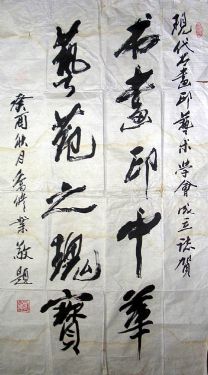 現代书畫印藝术学會成立誌賀
书畫印中華
藝苑之瑰寶
癸酉秋月業敬題